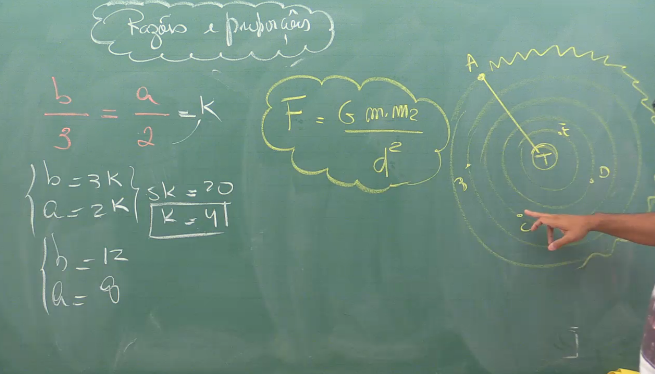 Razões e proporções
b/3 = a/2 = K
b = 3K
a = 2K
5K = 20
K = 4
b = 12
a = 8
F = G m1 m2 / d²
A
E
T
D
B
C